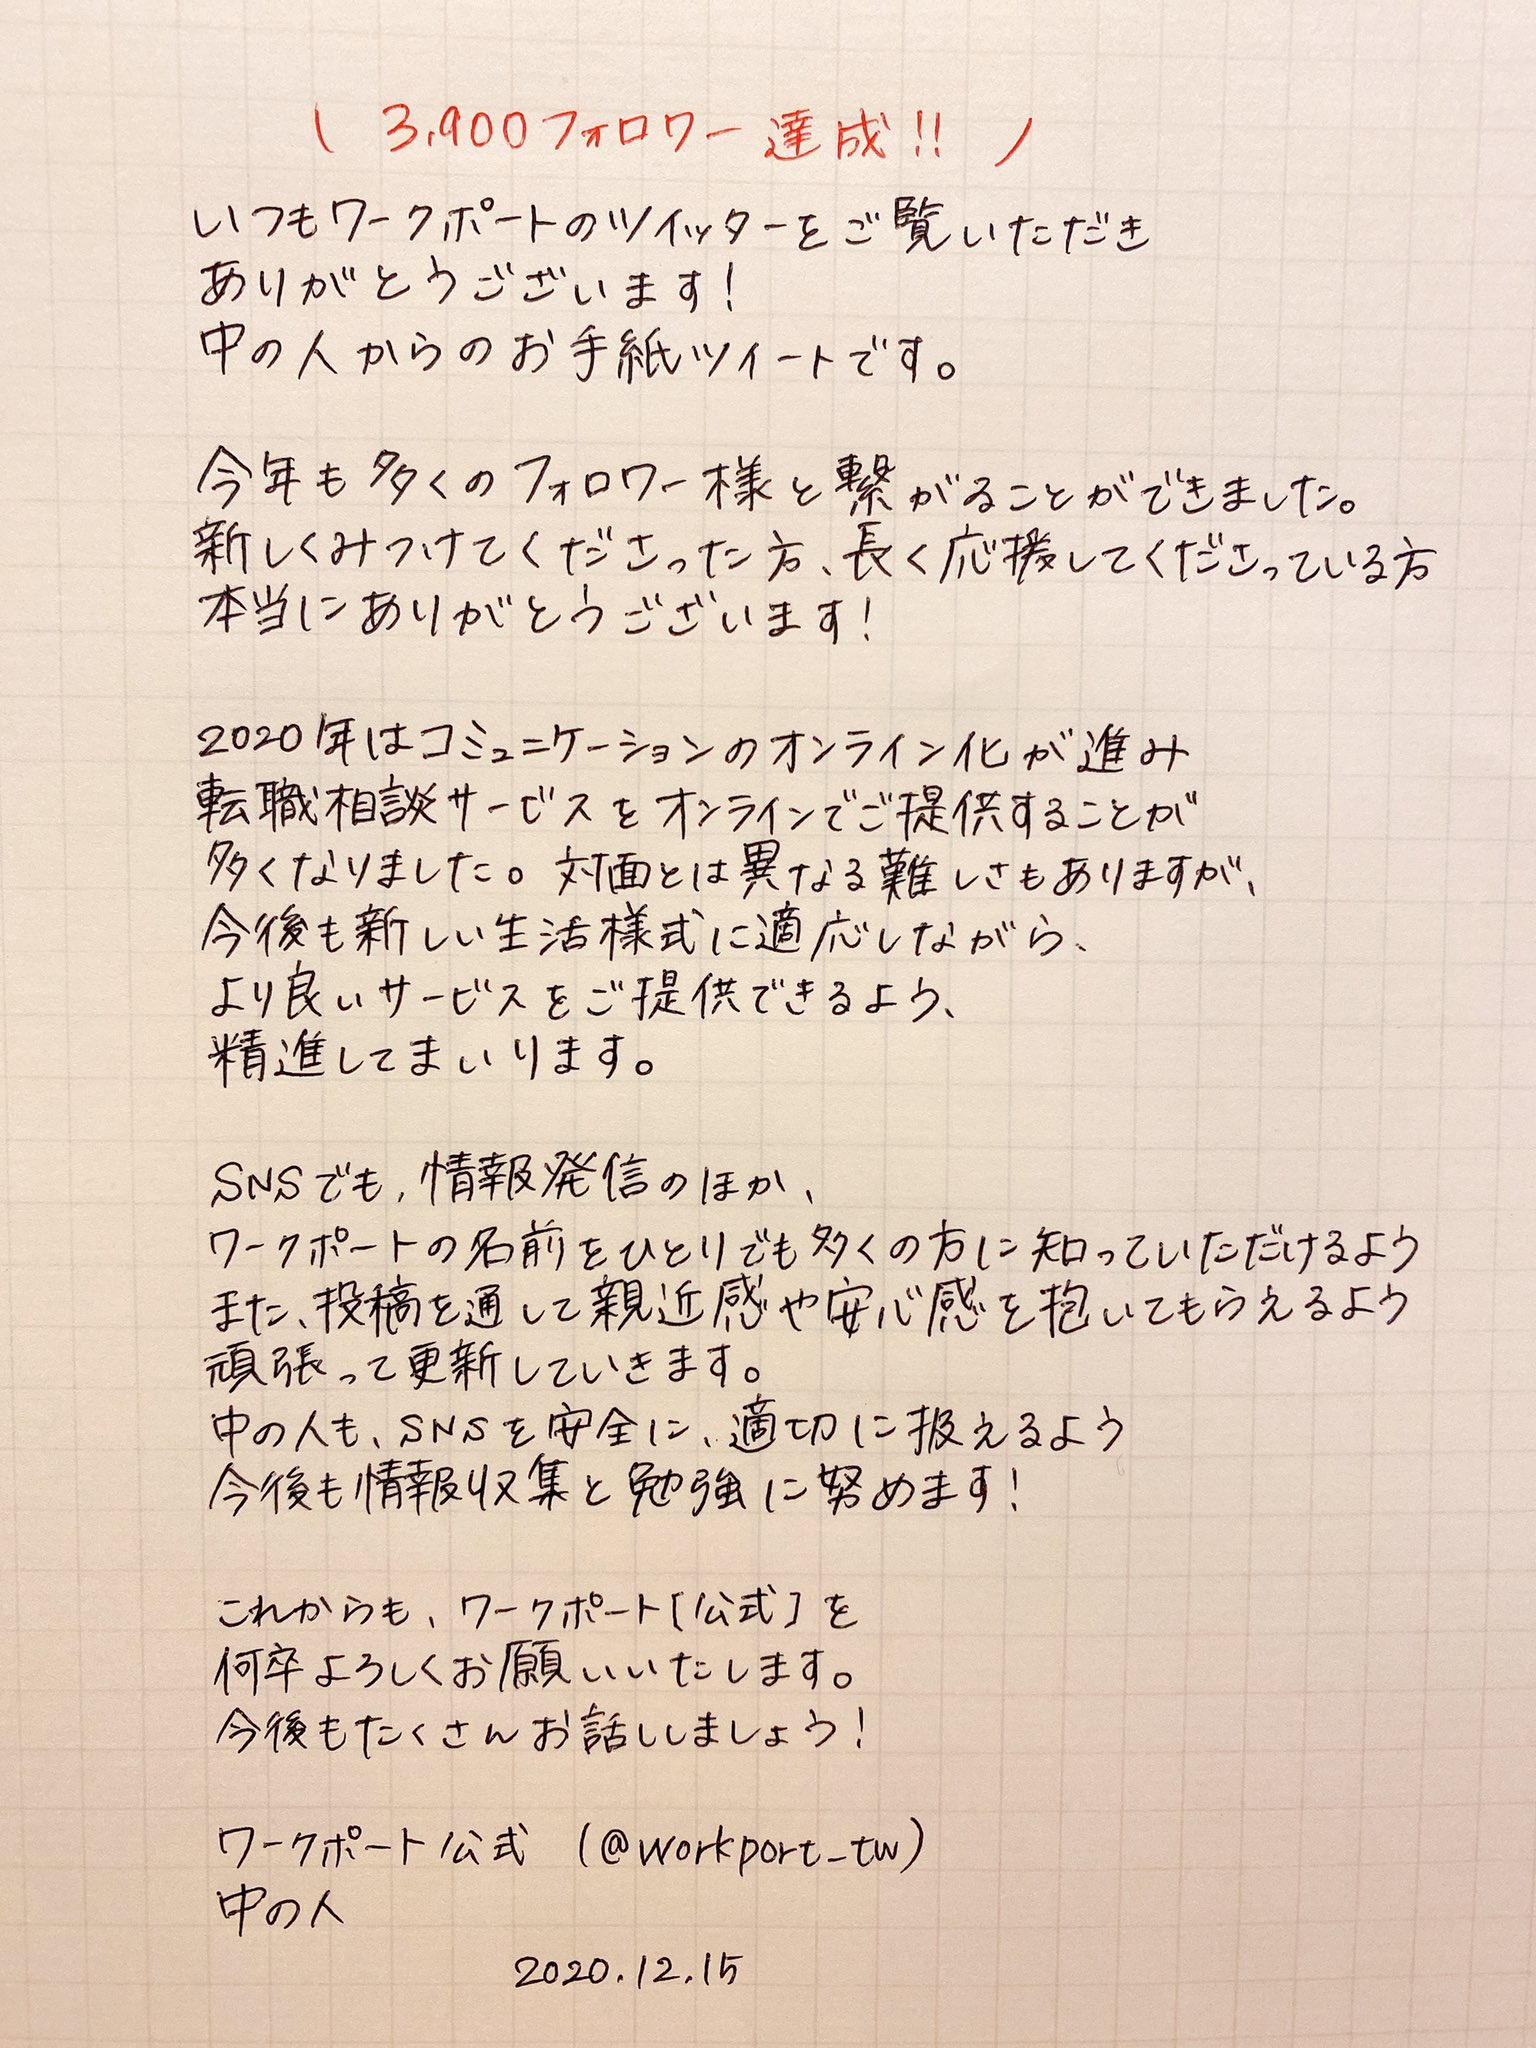 \ 3,900フォロワー達成!! /
いつもワークポートのツイッターをご覧いただき
ありがとうございます!
中の人からのお手紙ツイートです。
今年も多くのフォロワー様と繋がることができました。
新しくみつけてくださった方、長く応援してくださっている方
本当にありがとうございます!
2020年はコミュニケーションのオンライン化が進み
転職相談サービスをオンラインでご提供することが
多くなりました。対面とは異なる難しさもありますが、
今後も新しい生活様式に適応しながら、
より良いサービスをご提供できるよう、
精進してまいります。
SNSでも、情報発信のほか、
ワークポートの名前をひとりでも多くの方に知っていただけるよう
また、投稿を通して親近感や安心感を抱いてもらえるよう
頑張って更新していきます。
中の人も、SNSを安全に、適切に扱えるよう
今後も情報収集と勉強に努めます!
これからも、ワークポート[公式]を
何卒よろしくお願いいたします。
今後もたくさんお話ししましょう!
ワークポート公式 (@workport_tw)
中の人
2020.12.15